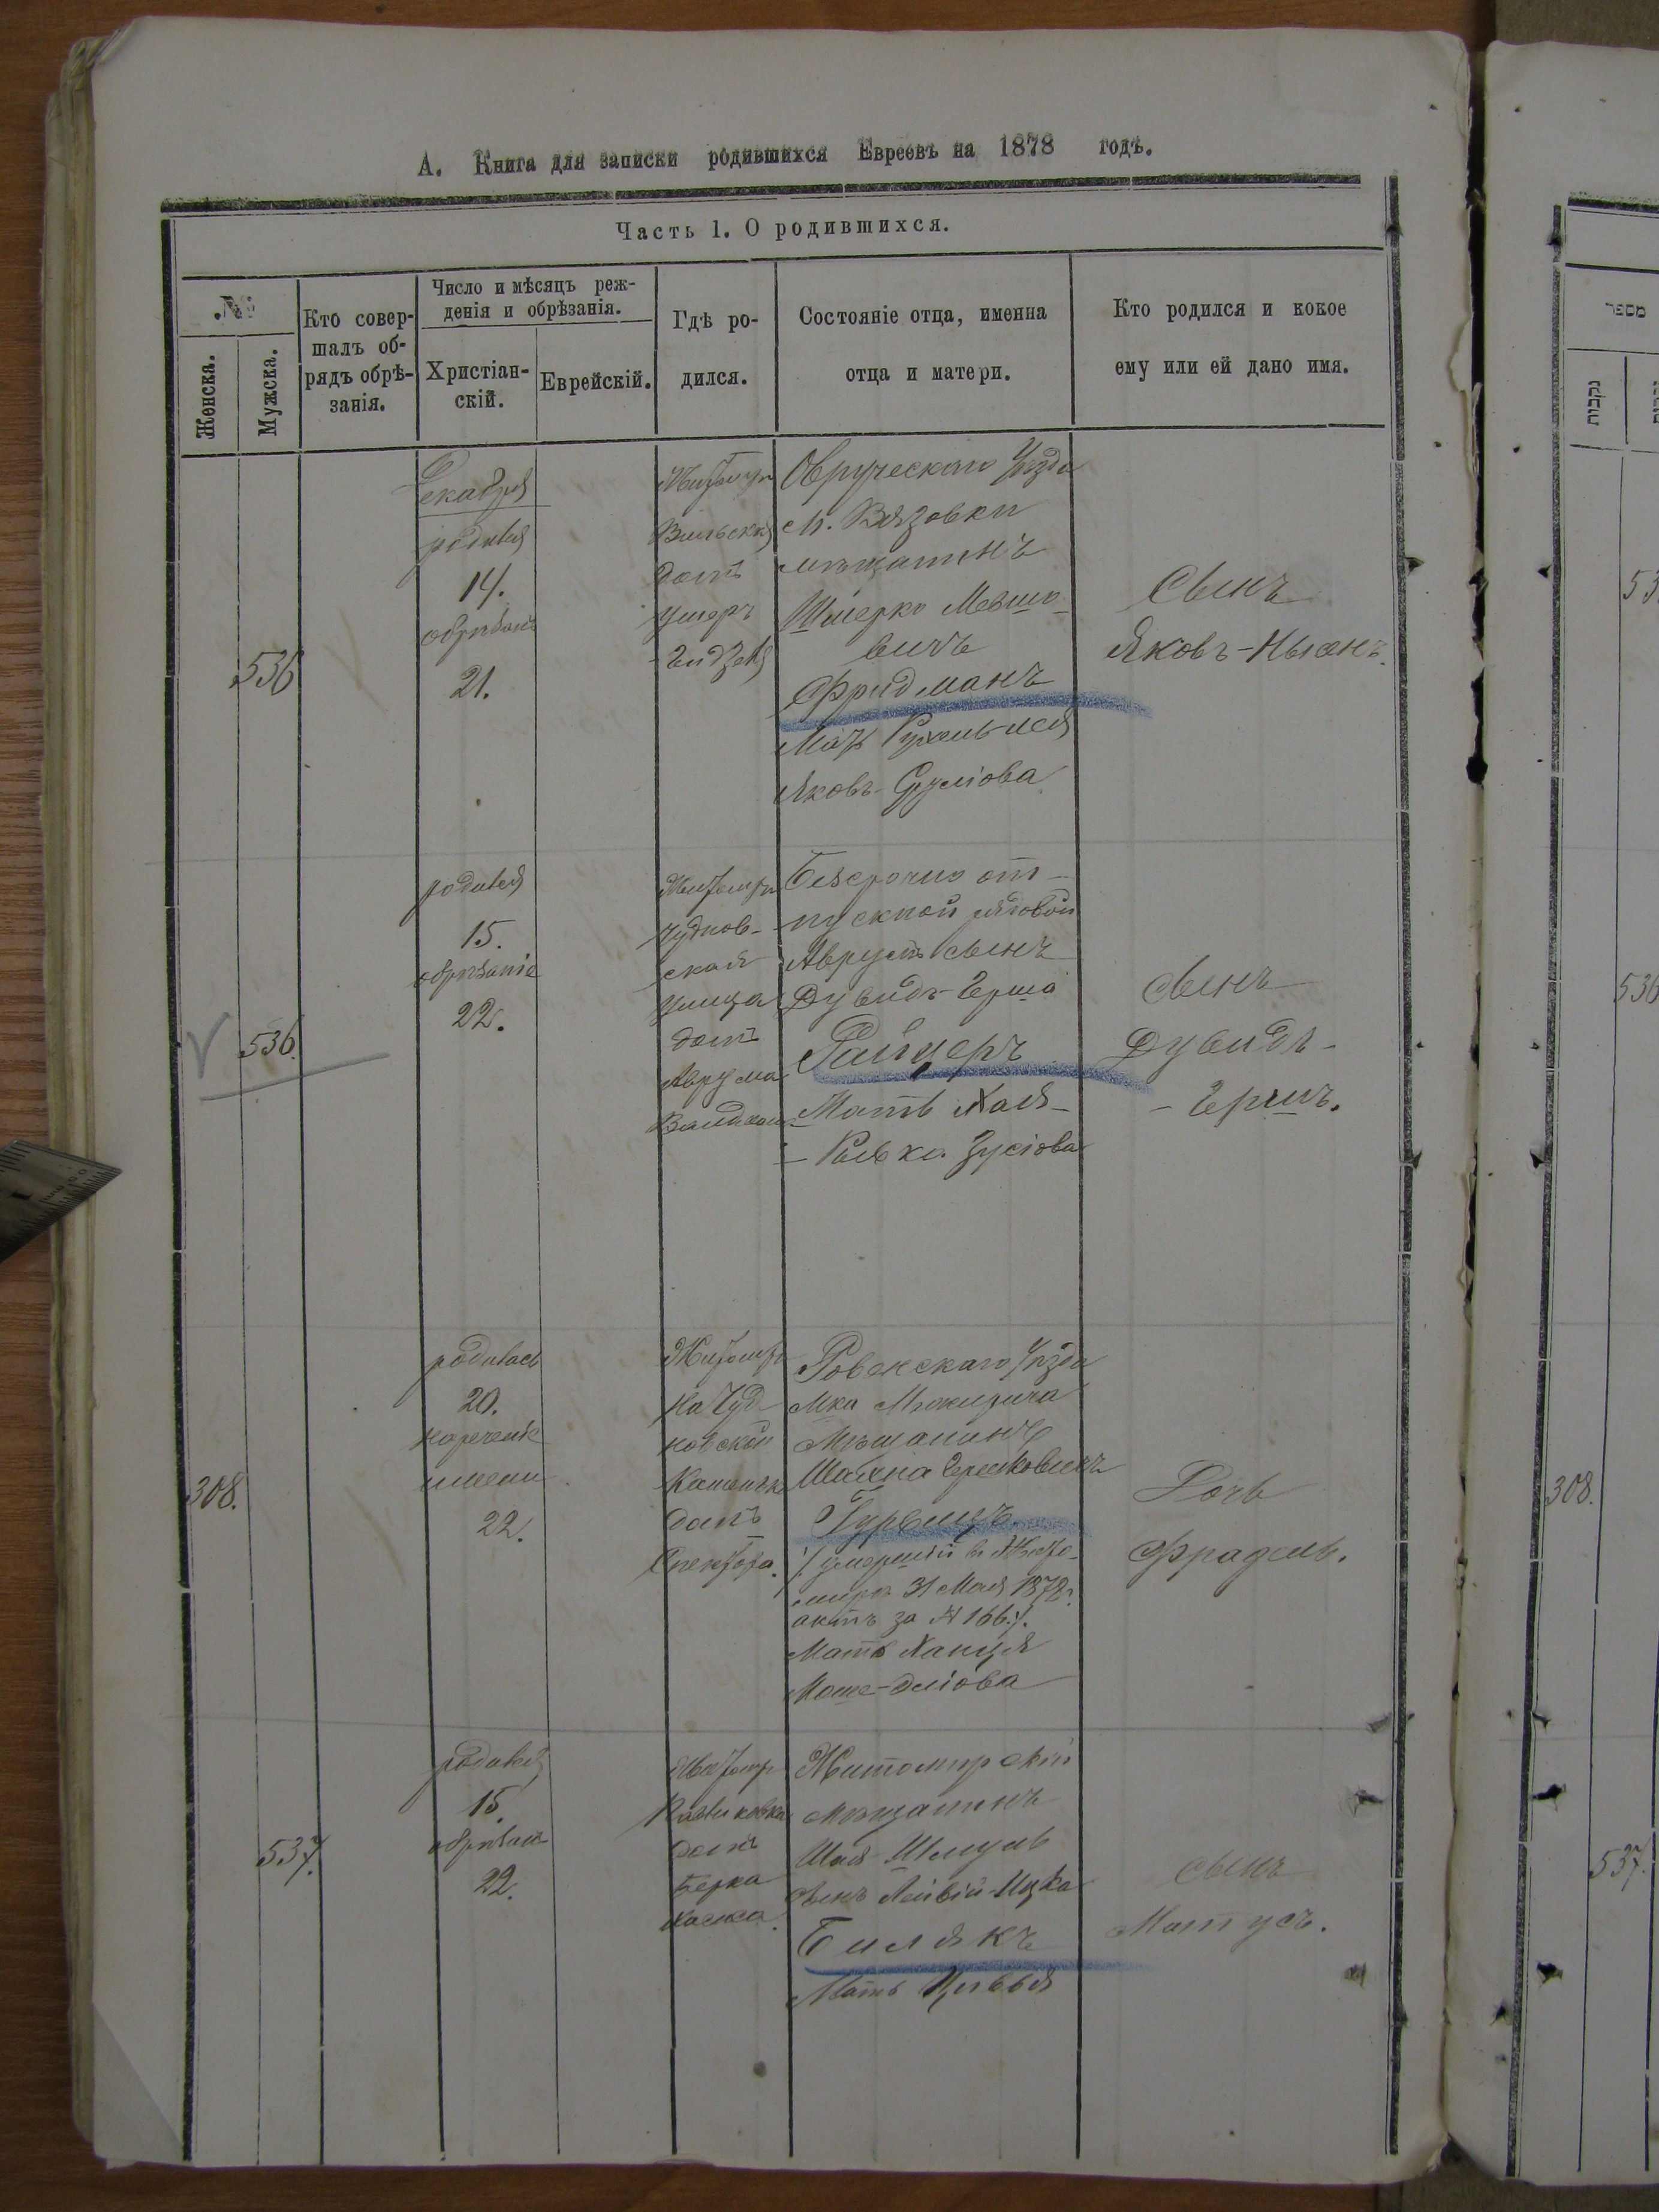 А. Книга для записки родившихся Евреевъ на 1878 годъ.
Часть 1. О родившихся.
№
Женска.
Мужска.
Кто совер-
шалъ об-
рядъ обрѣ-
занія.
Число и мѣсяцъ реж-
денія и обрѣзанія.
Христіан-
скій.
Еврейскій.
Гдѣ ро-
дился.
Состояніе отца, именна
отца и матери.
Кто родился и кокое
ему или ей дано имя.
536
Декабря
родился
14.
21.
домъ
Овручского Уѣзда
м. Вязовки
мѣщанинъ
Шмерко Мевшо-
вичъ
Фридманъ
Мать
Яковъ-Сруліова
Сынъ
Яковъ-
536.
родился
15.
обрѣзаніе
22.
Чуднов-
ская
улица
домъ
Аврума
Безсрочно от-
пускной рядовой
Аврумъ сынъ
Дувидъ-Герша
Мать Хая-
- Ривка Зусіова
сынъ
Дувидъ-
- Гершъ.
308.
родилась
20.
нареченіе
имени
22.
На Чуд-
новской
домъ
Спектора.
Ровенскаго Уѣзда
Мка Межирича
Мѣщанинъ
Гершковичъ
Гурвицъ
/: умершій в Жито-
мирѣ 31 Мая 1878 г.
актъ за № 166 :/.
Мать Ханця
Моше-Эліова
Дочь
Фрадель.
537.
родился
15.
22.
домъ
Берка
Житомирскій
Мѣщанинъ
Шая-Шмуль
сынъ Лейвій-Ицка
Билякъ
Мать Цивья
сынъ
Матусъ.
מספר
נקבות
53
536
308.
537.